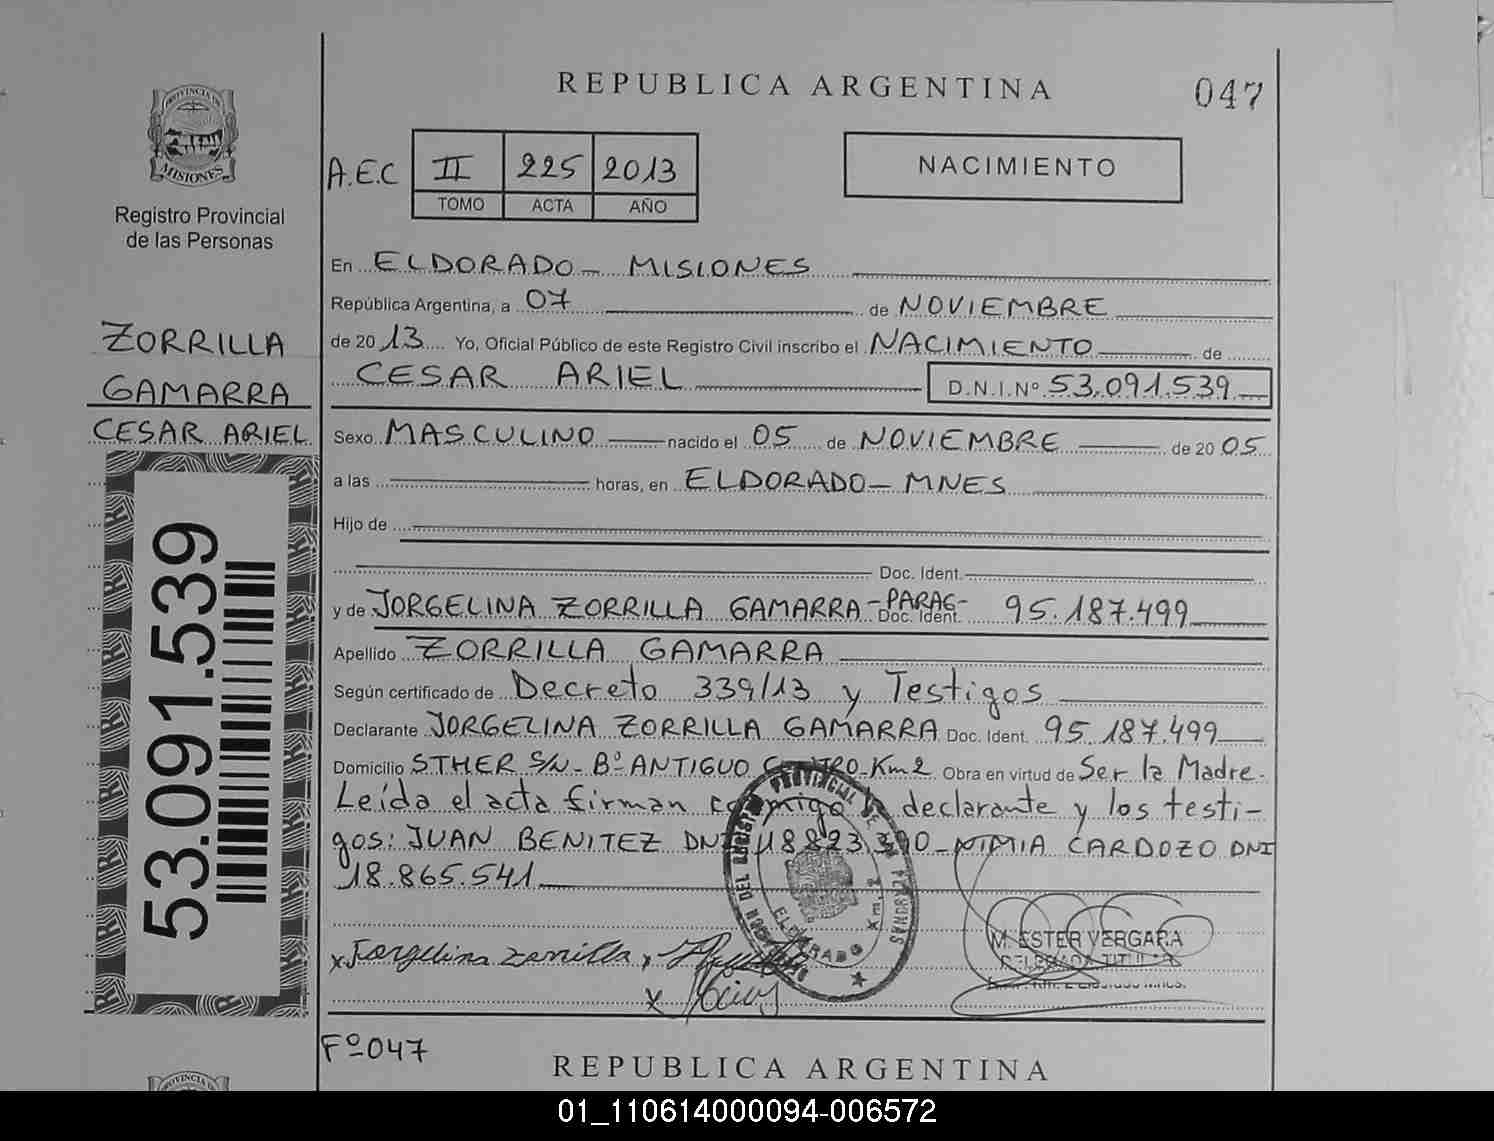 REPUBLICA ARGENTINA
047
PROVINCIA DE
MISIONES
Registro Provincial
de las Personas
A.E.C II 225 2013
TOMO ACTA AÑO
NACIMIENTO
ZORRILLA
GAMARRA
CESAR ARIEL
53.091.539
En ELDORADO - MISIONES
República Argentina, a 07 de NOVIEMBRE
de 2013 Yo, Oficial Público de este Registro Civil inscribo el NACIMIENTO de
CESAR ARIEL D.N.I.Nº 53.091.539
Sexo MASCULINO nacido el 05 de NOVIEMBRE de 2005
a las horas, en ELDORADO - MNES
Hijo de
Doc. Ident.
y de JORGELINA ZORRILLA GAMARRA -PARAG- Doc. Ident. 95.187.499
Apellido ZORRILLA GAMARRA
Según certificado de Decreto 339/13 y Testigos
Declarante JORGELINA ZORRILLA GAMARRA Doc. Ident. 95.187.499
Domicilio STHER S/N - Bº ANTIGUO Km 2 Obra en virtud de Ser la Madre.
Leída el acta firman conmigo declarante y los testi-
gos: JUAN BENITEZ DNI - NIMIA CARDOZO DNI
18.865.541
ELDORADO Km. 2
x Jorgelina Zorrilla x
x
M. ESTER VERGARA
DELEGADA TITULAR
Fº 047
PROVINCIA DE
REPUBLICA ARGENTINA
01_110614000094-006572